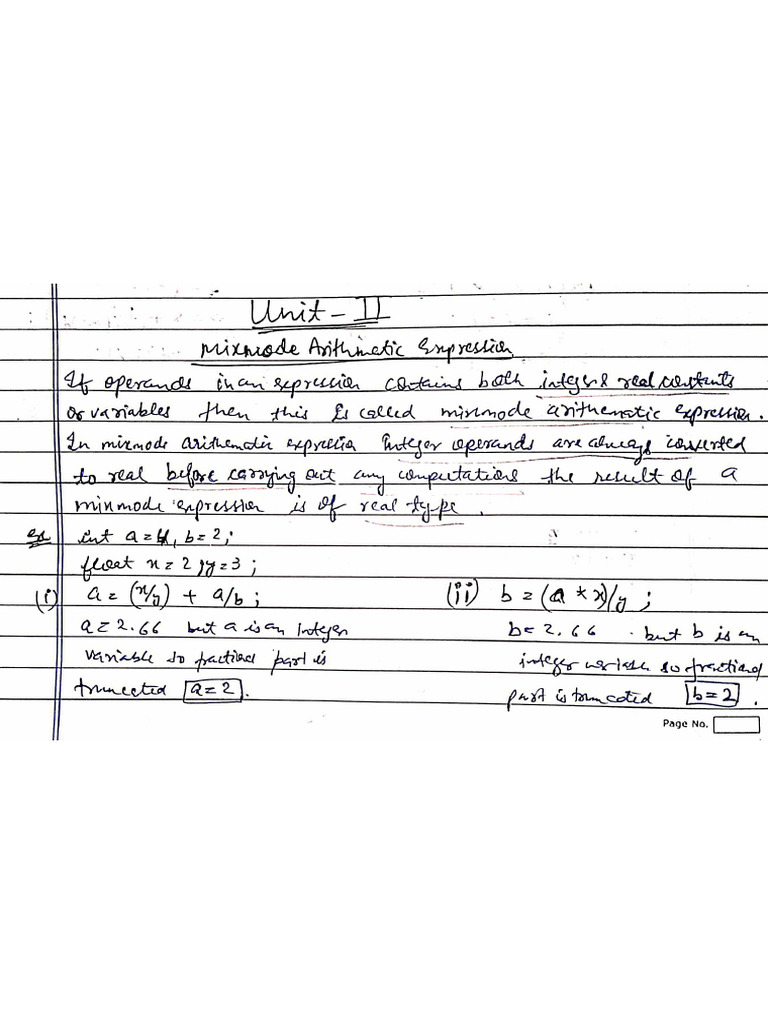 Unit - II
Mixmode Arithmatic Expression
If operands in an expression contains both integer & real constents
or variables then this is called mixmode arithematic expression.
In mixmode arithematic expression Integer operands are always converted
to real before carrying out any computations the result of a
mixmode expression is of real type.
Ex int a=4, b=2;
float x=2, y=3;
(i) a = (x/y) + a/b; (ii) b = (a * x)/y;
a=2.66 but a is an Integer b=2.66 . but b is an
variable so fractional part is integer variable so fractional
truncated a=2. part is truncated b=2.
Page No.